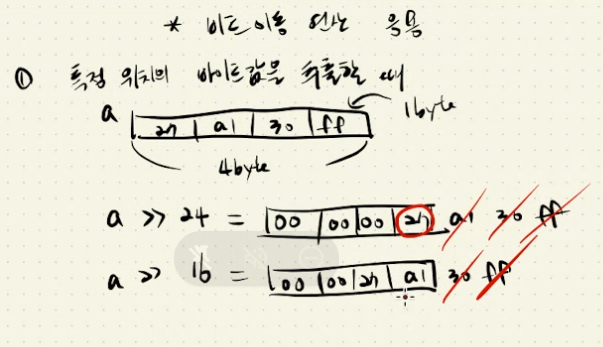 * 비트 이동 연산 응용
① 특정 위치의 바이트값을 추출할 때
a 27 a1 30 ff 1byte
4byte
a >> 24 = 00 00 00 27 a1 30 ff
a >> 16 = 00 00 27 a1 30 ff